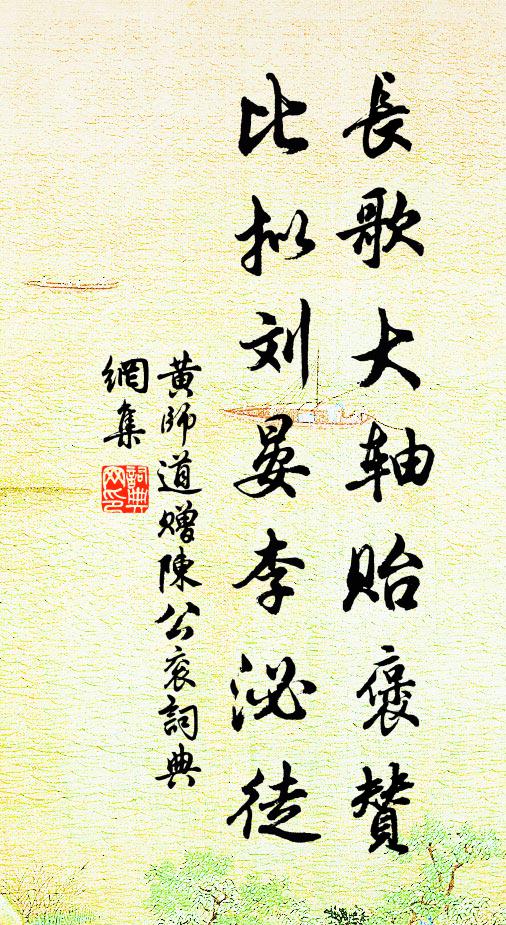 長歌大軸貽褒贊
比拟刘晏李泌徒
黄師道贈陳公衮詞典
網集
詞典網印